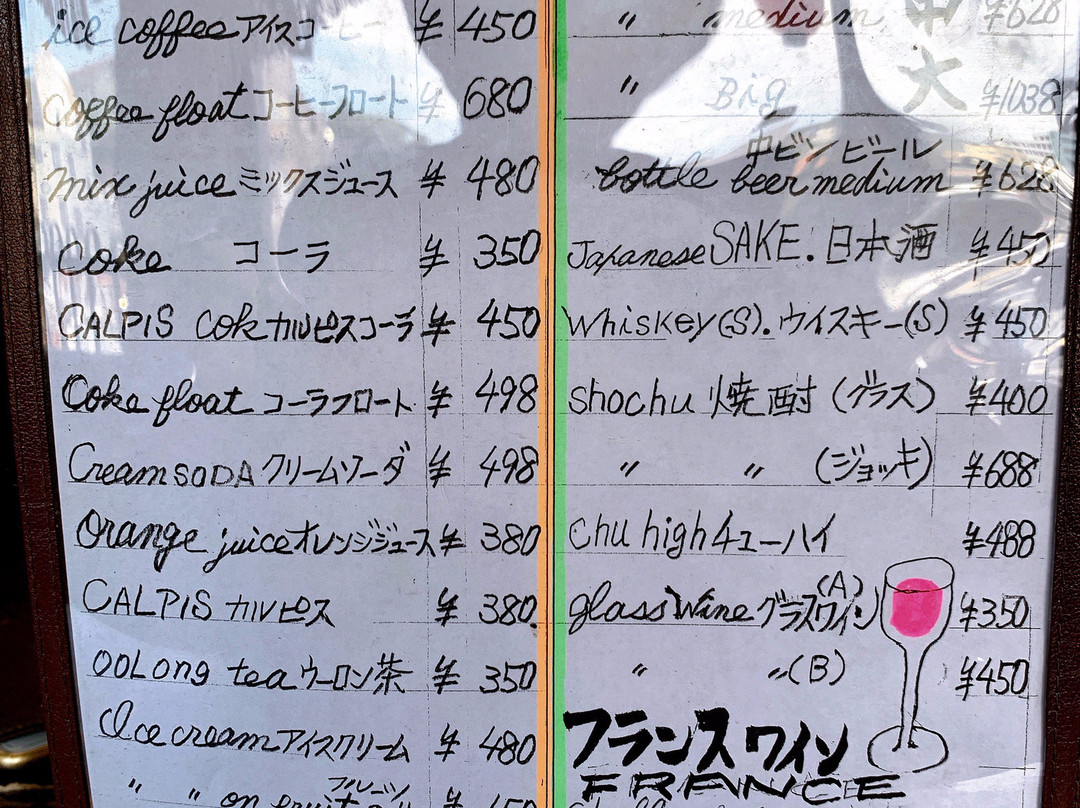 ice coffee アイスコーヒー ¥450
coffee float コーヒーフロート ¥680
mix juice ミックスジュース ¥480
coke コーラ ¥350
CALPIS cok カルピスコーラ ¥450
Coke float コーラフロート ¥498
Cream SODA クリームソーダ ¥498
Orange juice オレンジジュース ¥380
CALPIS カルピス ¥380
OOLong tea ウーロン茶 ¥350
Ice cream アイスクリーム ¥480
〃 〃 on fruit フルーツ
〃 〃medium 中 ¥628
〃 Big 大 ¥1038
中ビンビール
bottle beer medium ¥628
Japanese SAKE. 日本酒 ¥450
Whiskey(S). ウイスキー(S) ¥450
Shochu 焼酎 (グラス) ¥400
〃 〃 (ジョッキ) ¥688
Chu high チューハイ ¥488
glass Wine グラスワイン (A) ¥350
〃 〃(B) ¥450
フランスワイン
FRANCE